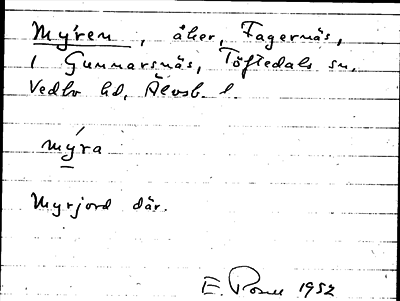 My´ren, åker, Fagernäs,
1 Gunnarsnäs, Töftedals sn.
Vedbo hd, Älvsb. l.
my´ra
Myrjord där.
E. 1952